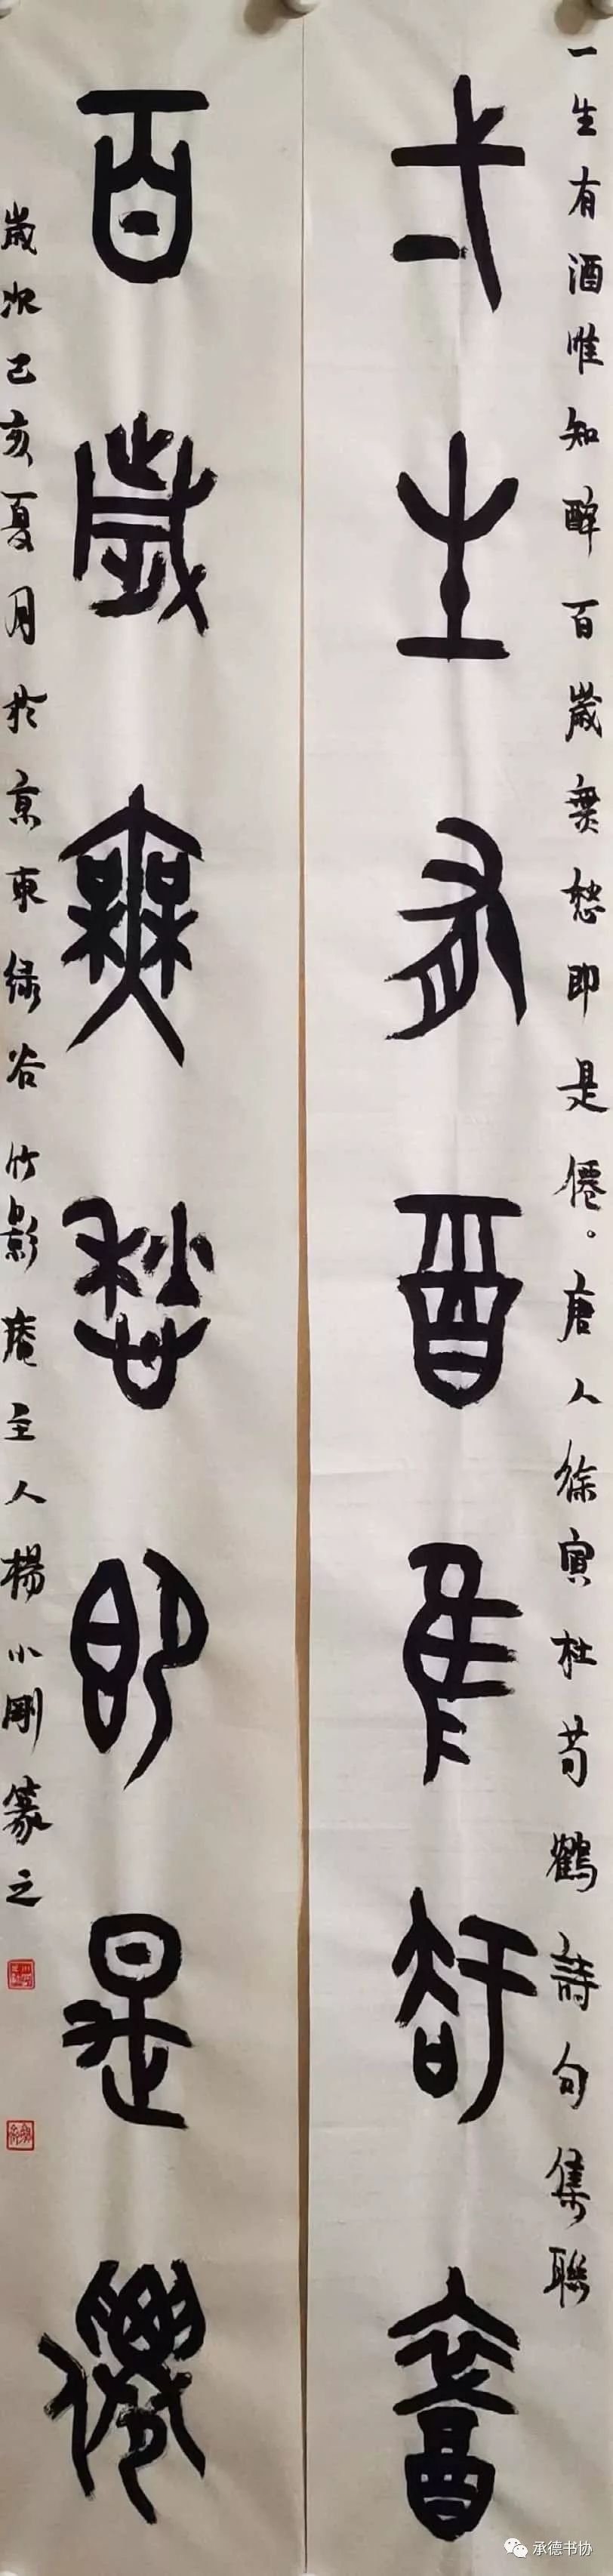 一生有酒唯知醉百歲無愁即是僊。唐人徐寅杜荀鶴詩句集聯
弌生有酉隹智醉
百歲無愁即是僊
歲次己亥夏月於京東綠谷竹影庵主人楊小剛篆之
承德书协